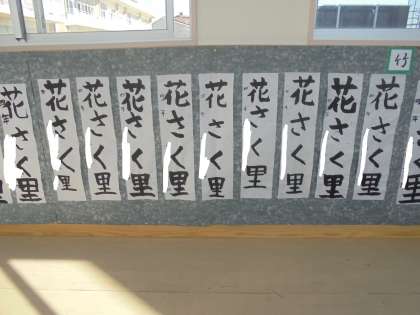 竹
花さく里
花さく里
花さく里
花さく里
花さく里
花さく里
花さく里
花さく里
花さく里
花さく里